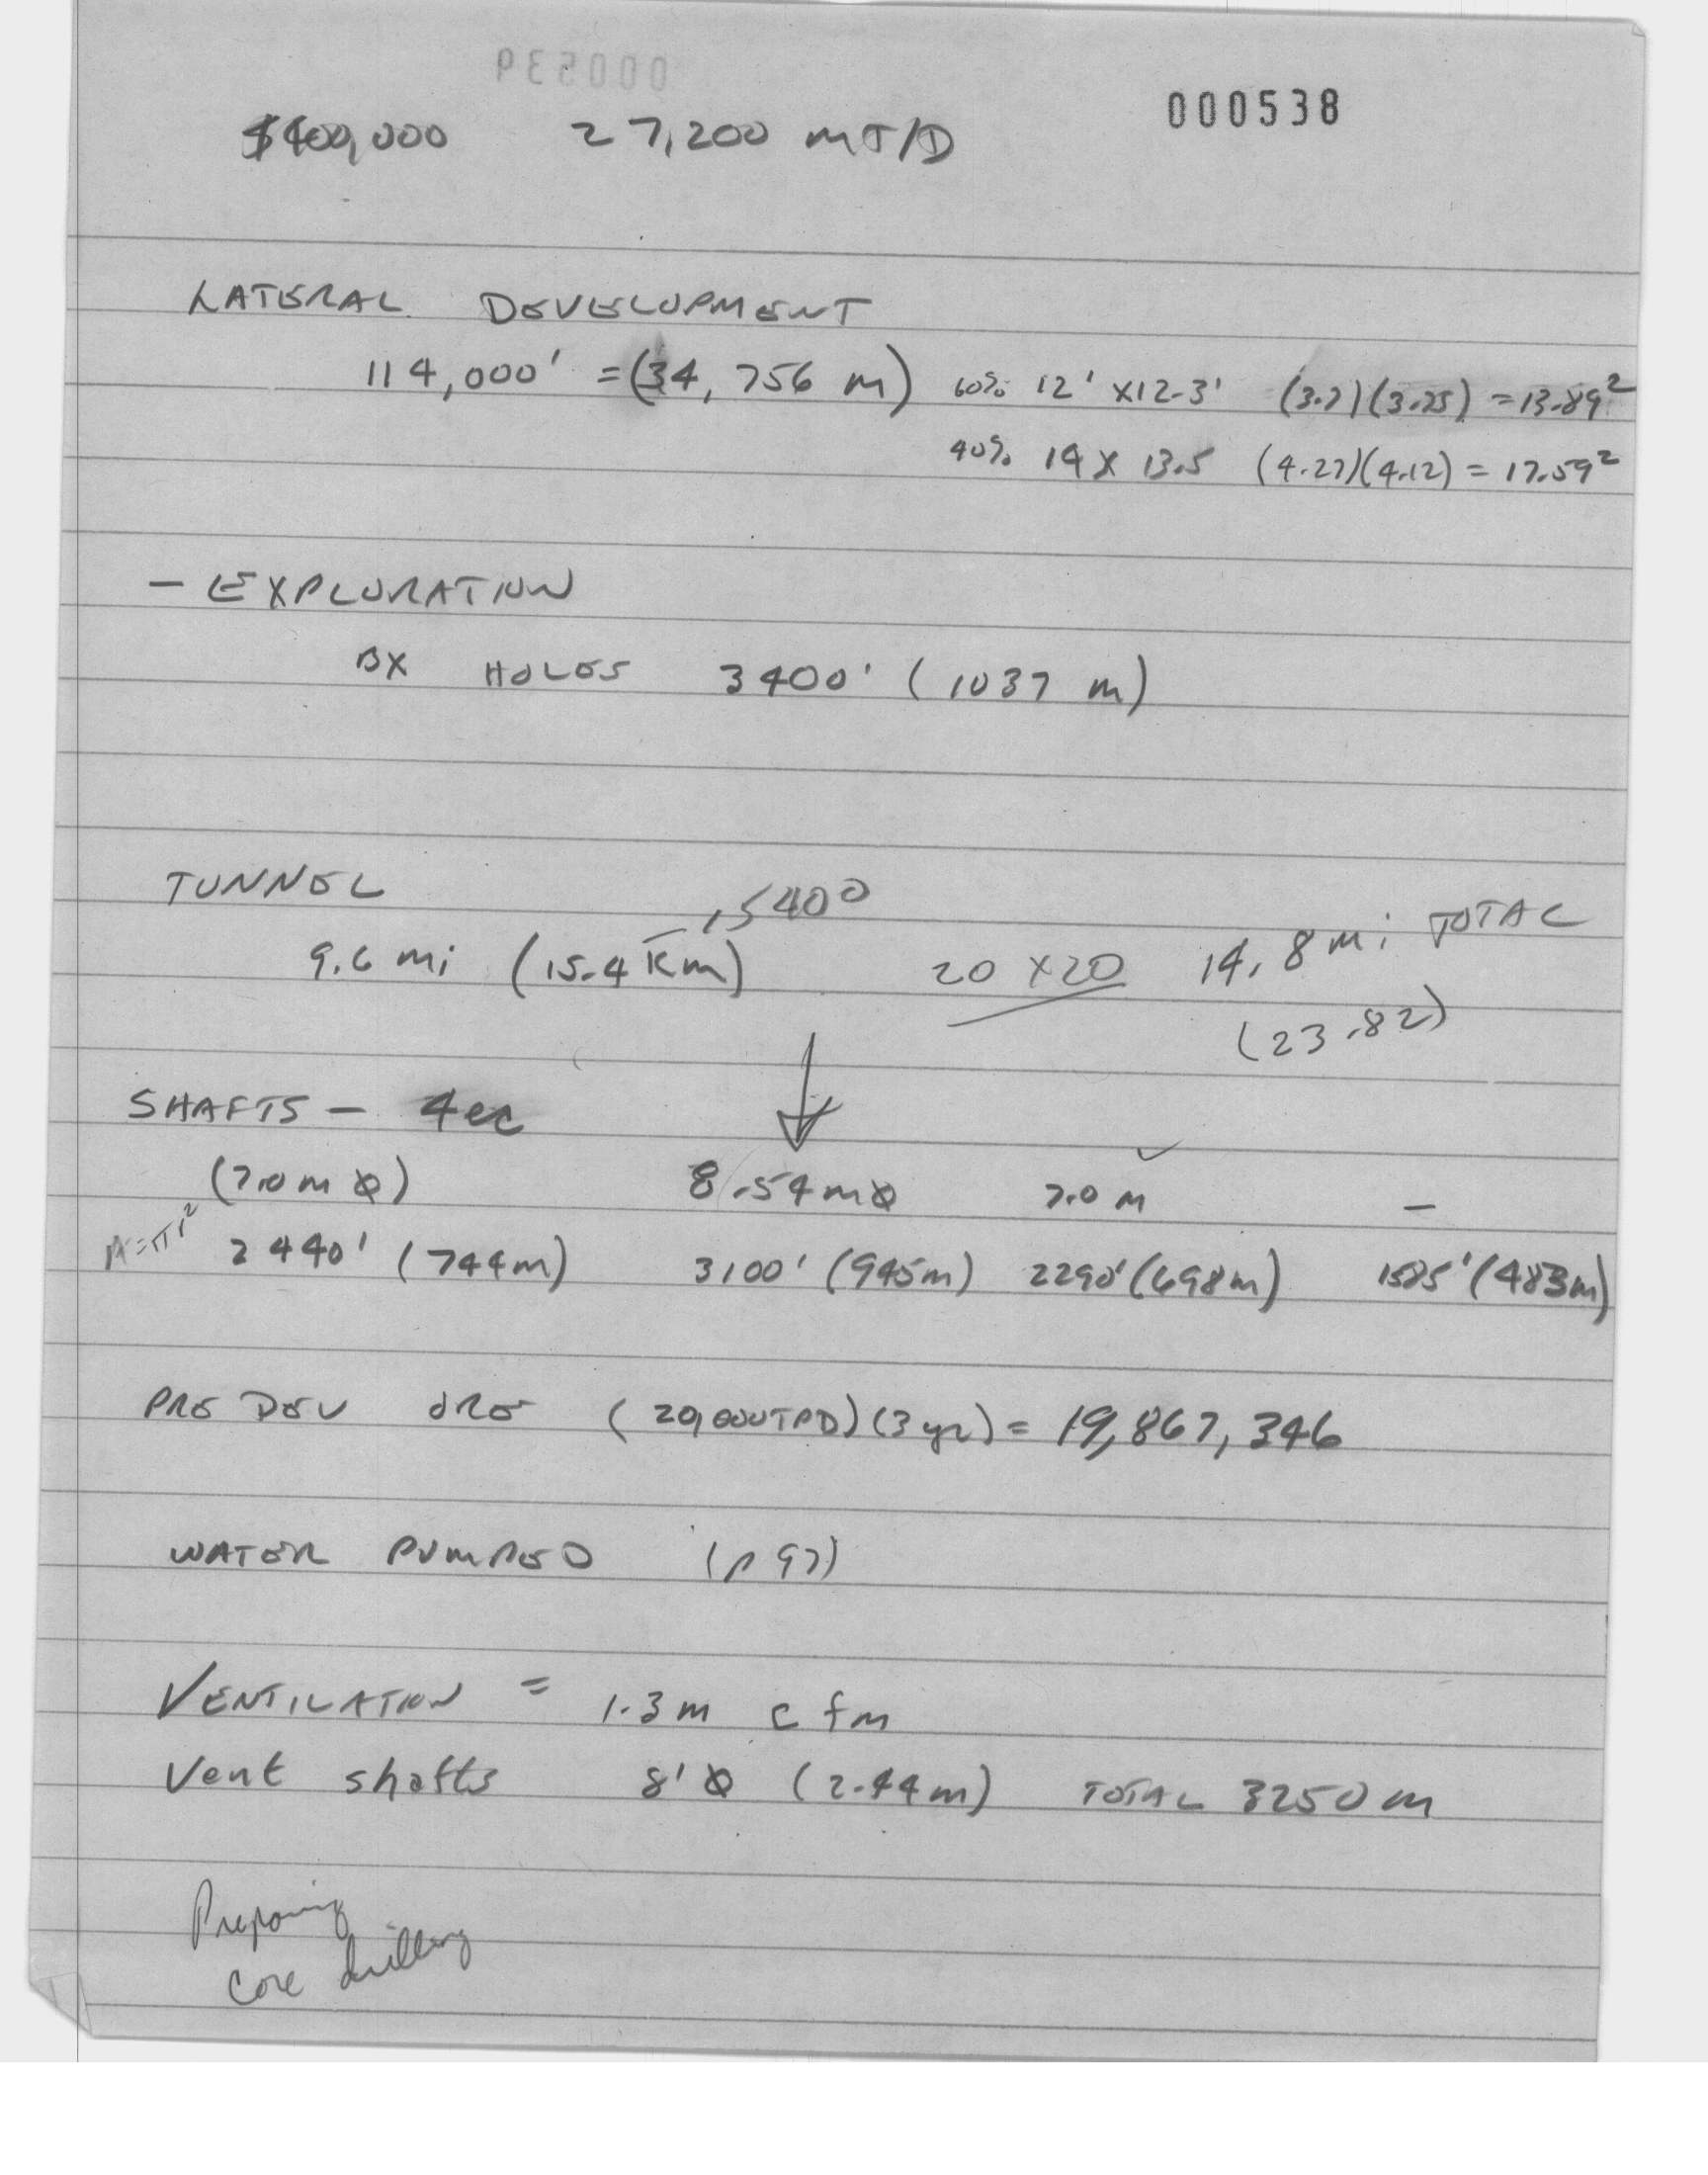 000538
$400,000 27,200 MT/D
LATERAL DEVELOPMENT
114,000' = (34,756 m) 60% 12' x12.3' (3.7)(3.75) = 13.89²
40% 14 x 13.5 (4.27)(4.12) = 17.59²
— EXPLORATION
BX HOLES 3400' (1037 m)
TUNNEL
15400
9.6 mi (15.4 Km) 20 x 20 14.8 mi TOTAL
(23.82)
SHAFTS — 4ea
(7.0 m Ø) 8.54 m Ø 7.0 M —
A=πr²
2440' (744m) 3100' (945m) 2290' (698m) 1585' (483m)
PRE DEV ORE (20,000TPD)(3 yr) = 19,867,346
WATER PUMPED (p 97)
VENTILATION = 1.3 m cfm
Vent shafts 8' Ø (2.44m) TOTAL 3250 m
Preparing
Core drilling